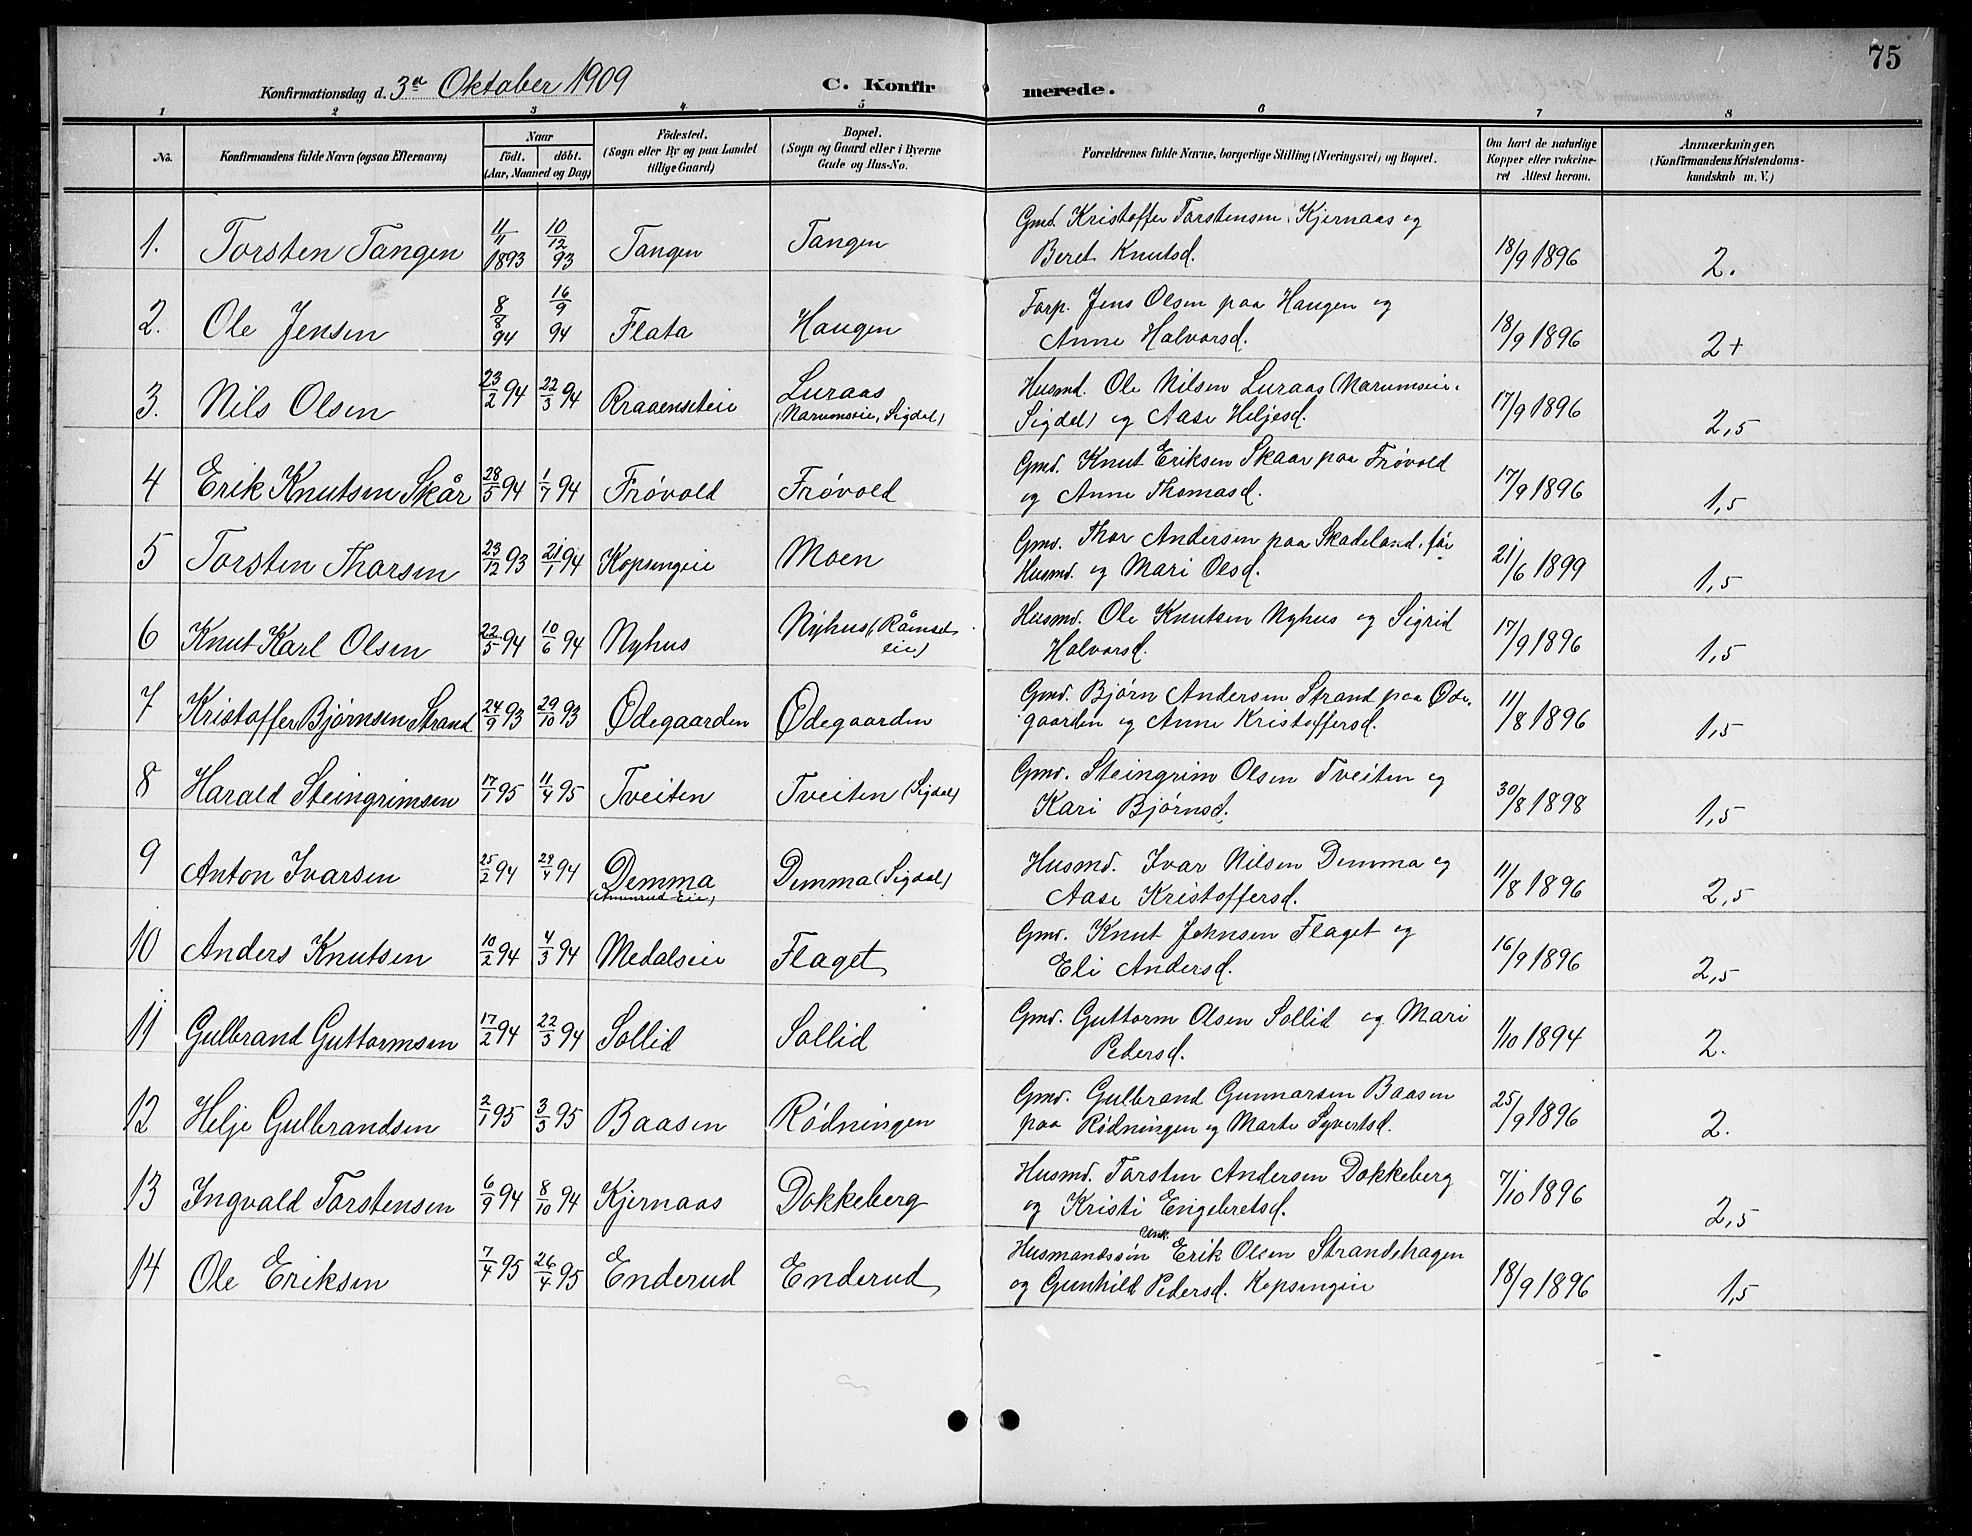 75
Konfirmationsdag d. 3d Oktober 1909 C. Konfirmerede.
1 2 3 4 5 6 7 8
No. Konfirmandens fulde Navn (ogsaa Efternavn) Naar födt. döbt. (Aar, Maaned og Dag) Födested. (Sogn eller By og paa Landet tillige Gaard) Bopæl. (Sogn og Gaard eller i Byerne Gade og Hus-No. Forældrenes fulde Navne, borgerlige Stilling (Næringsvei) og Bopæl. Om havt de naturlige Kopper eller vakcineret Attest herom. Anmærkninger. (Konfirmandens Kristendomskundskab m. V.)
1. Torsten Tangen 11/11 1893 10/12 93 Tangen Tangen Gmd. Kristoffer Torstensen Kjernaas og
Beret Knutsd. 18/9 1896 2.
2. Ole Jensen 8/8 94 16/9 94 Flata Haugen Forp. Jens Olsen paa Haugen og
Anne Halvorsd. 18/9 1896 2+
3. Nils Olsen 23/2 94 22/3 94 Kraaenseie Luraas (Narumseie, Sigdal) Husmd. Ole Nilsen Luraas (Narumseie.
Sigdal) og Aase Heljesd. 17/9 1896 2,5
4 Erik Knutsen Skår 28/5 94 1/7 94 Frövold Frövold Gmd. Knut Eriksen Skaar paa Frövold
og Anne Thomasd. 17/9 1896 1,5
5 Torsten Thorsen 23/12 93 21/1 94 Kopsengeie Moen Gmd. Thor Andersen paa Skadeland, för
Husmd. og Mari Olsd. 21/6 1899 1,5
6 Knut Karl Olsen 22/5 94 10/6 94 Nyhus Nyhus (Råmseleie) Husmd. Ole Knutsen Nyhus og Sigrid
Halvorsd. 17/9 1896 1,5
7 Kristoffer Bjørnsen Strand 24/9 93 29/10 93 Ødegaarden Ødegaarden Gmd. Bjørn Andersen Strand paa Øde-
gaarden og Anne Kristoffersd. 11/8 1896 1,5
8 Harald Steingrimsen 17/1 95 11/4 95 Tveiten Tveiten (Sigdal) Gmd. Steingrim Olsen Tveiten og
Kari Bjørnsd. 30/8 1898 1,5
9 Anton Ivarsen 25/2 94 29/4 94 Demma Demma (Sigdal) Husmd. Ivar Nilsen Demma og
Aase Kristoffersd. 11/8 1896 2,5
10 Anders Knutsen 10/2 94 4/3 94 Medalseie Flaget Gmd. Knut Johnsen Flaget og
Eli Andersd. 16/9 1896 2,5
11 Gulbrand Guttormsen 17/2 94 22/3 94 Sollid Sollid Gmd. Guttorm Olsen Sollid og Mari
Pedersd. 1/10 1894 2.
12 Helje Gulbrandsen 2/1 95 3/3 95 Baasen Rødningen Gmd. Gulbrand Gunnarsen Baasen
paa Rødningen og Marte Syvertsd. 25/9 1896 2.
13 Ingvald Torstensen 6/9 94 8/10 94 Kjernaas Dokkeberg Husmd. Torsten Andersen Dokkeberg
og Kristi Engebretsd. 7/10 1896 2,5
14 Ole Eriksen 7/4 95 26/4 95 Enderud Enderud Husmandssön Unk. Erik Olsen Strandehagen
og Gunhild Pedersd. Kopsengeie 18/9 1896 1,5